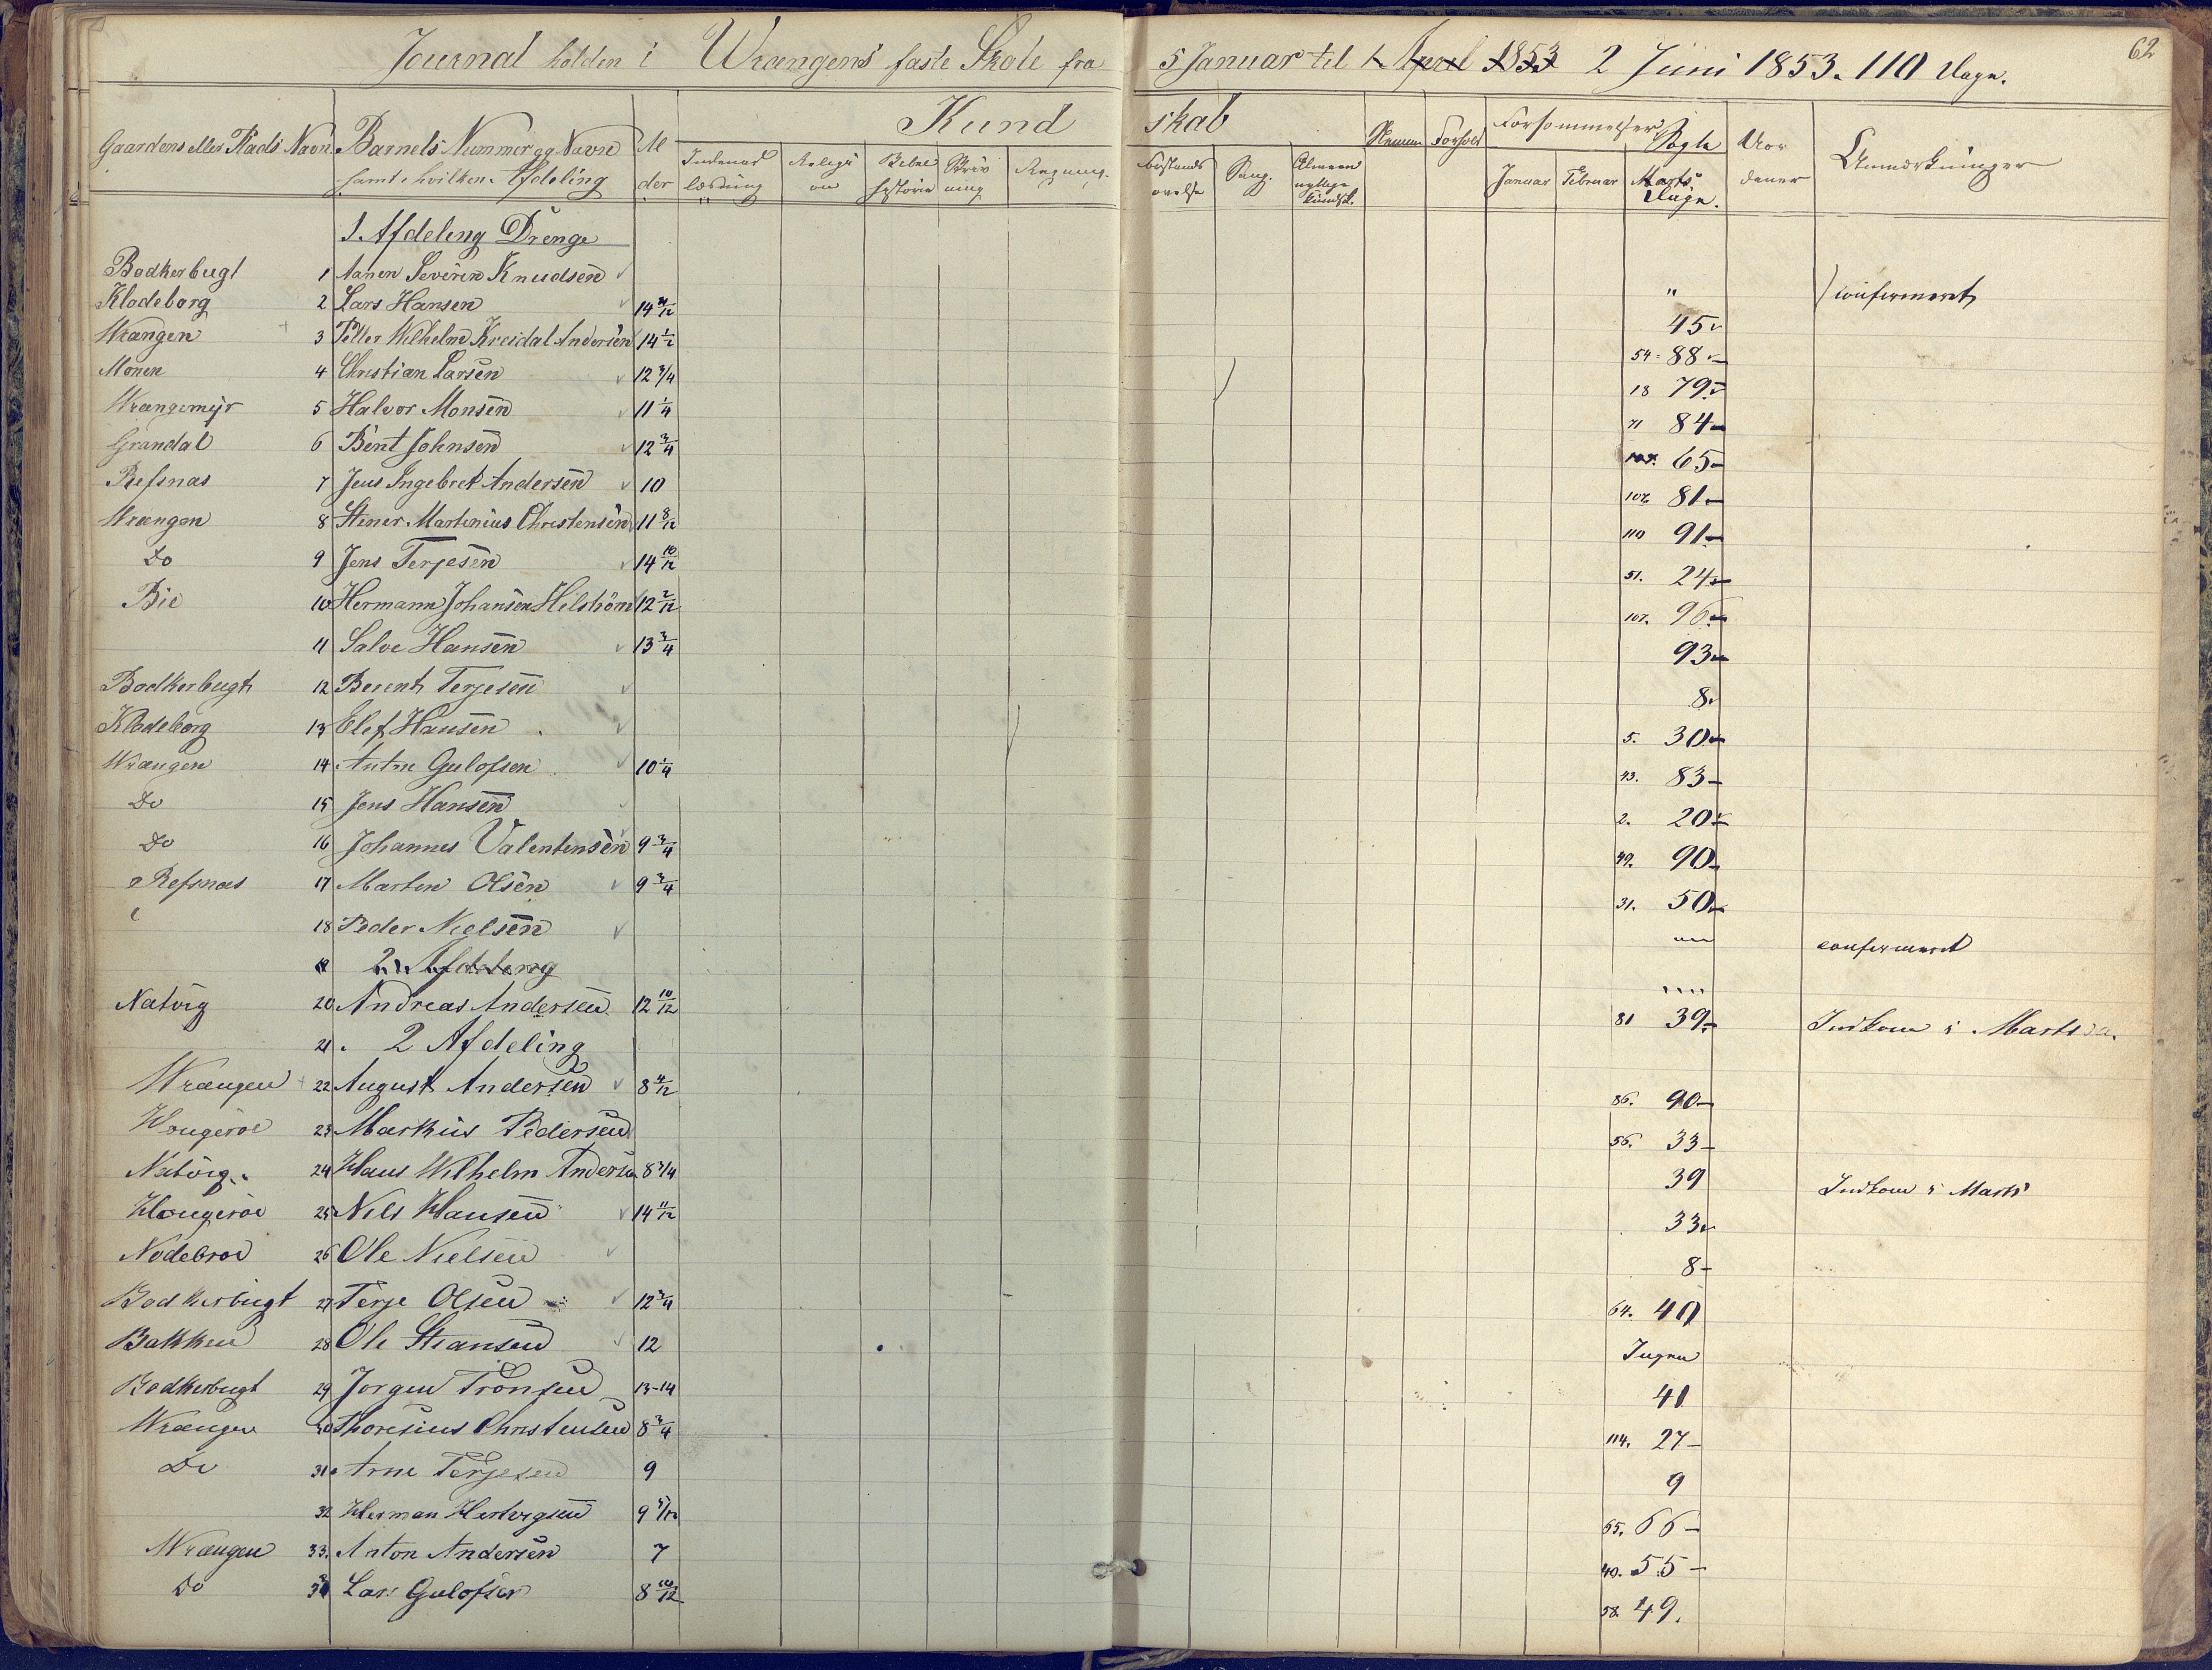 62
Journal holden i Wrængens faste Skole fra 5 Januar til 1 April 1853 2 Juni 1853. 110 Dage.
Gaardens eller Plads Navn Barnets Nummer og Navn samt i hvilken Afdeling Al der Kund skab
Indenad læsning Religi on Bibel historie Skriv ning Regning. Forstands ovelse Sang. Almeen nyttige Kundsk. Nemme Forhold Forsømmelser Januar Februar Marts Sogte Dage. Vor dener Anmærkninger
1 Afdeling Drenge
Bodkerbugt 1 Aanen Severin Knudsen " confirmeret
Klodeborg 2 Lars Hansen 14 4/12 45
Wrængen 3 Petter Wilhelm Kreidal Andersen 14 1/2 54 88
Monen 4 Christian Larsen 12 3/4 18 79
Wrængemyr 5 Halvor Monsen 11 1/4 71 84
Grandal 6 Bent Johnsen 12 3/4 65
Refsnæs 7 Jens Ingebret Andersen 10 107. 81
Wrængen 8 Stener Martinius Christensen 11 8/12 110 91
Do 9 Jens Terjesen 14 10/12 51. 24
Bie 10 Hermann Johansen Hilstrøm 12 2/12 107. 96
11 Salve Hansen 13 3/4 93
Bodkerbugt 12 Berent Terjesen 8
Klodeborg 13 Elef Hansen 5. 30
Wrængen 14 Anton Gulofsen 10 1/4 43. 83
Do 15 Jens Hansen 2. 20
Do 16 Johannes Valentinsen 9 3/4 49. 90
Refsnæs 17 Marten Olsen 9 3/4 31. 50
18 Peder Nielsen confirmeret
19 2. Afdeling
Natvig 20 Andreas Andersen 12 10/12 81 39 Indkom i Marts
21. 2 Afdeling
Wrængen 22 August Andersen 8 4/12 86. 90
Hougeroe 23 Markus Pedersen 56. 33
Natvig 24 Hans Wilhelm Andersen 8 3/4 39 Indkom i Marts
Hougeroe 25 Nils Hansen 14 11/12 33
Nodebroe 26 Ole Nielsen 8
Bodkerbugt 27 Terje Olsen 12 3/4 64. 40
Bakken 28 Ole Steansen 12 Ingen
Bodkerbugt 29 Jorgen Tronsen 13-14 41
Wrængen 30 Thoresius Christensen 8 3/4 114. 27
Do 31 Arne Terjesen 9 9
32 Herman Hertvigsen 9 5/12 65. 66
Wrængen 33. Anton Andersen 7 40. 55
Do 34 Lars Gulofsen 8 10/12 58 49.